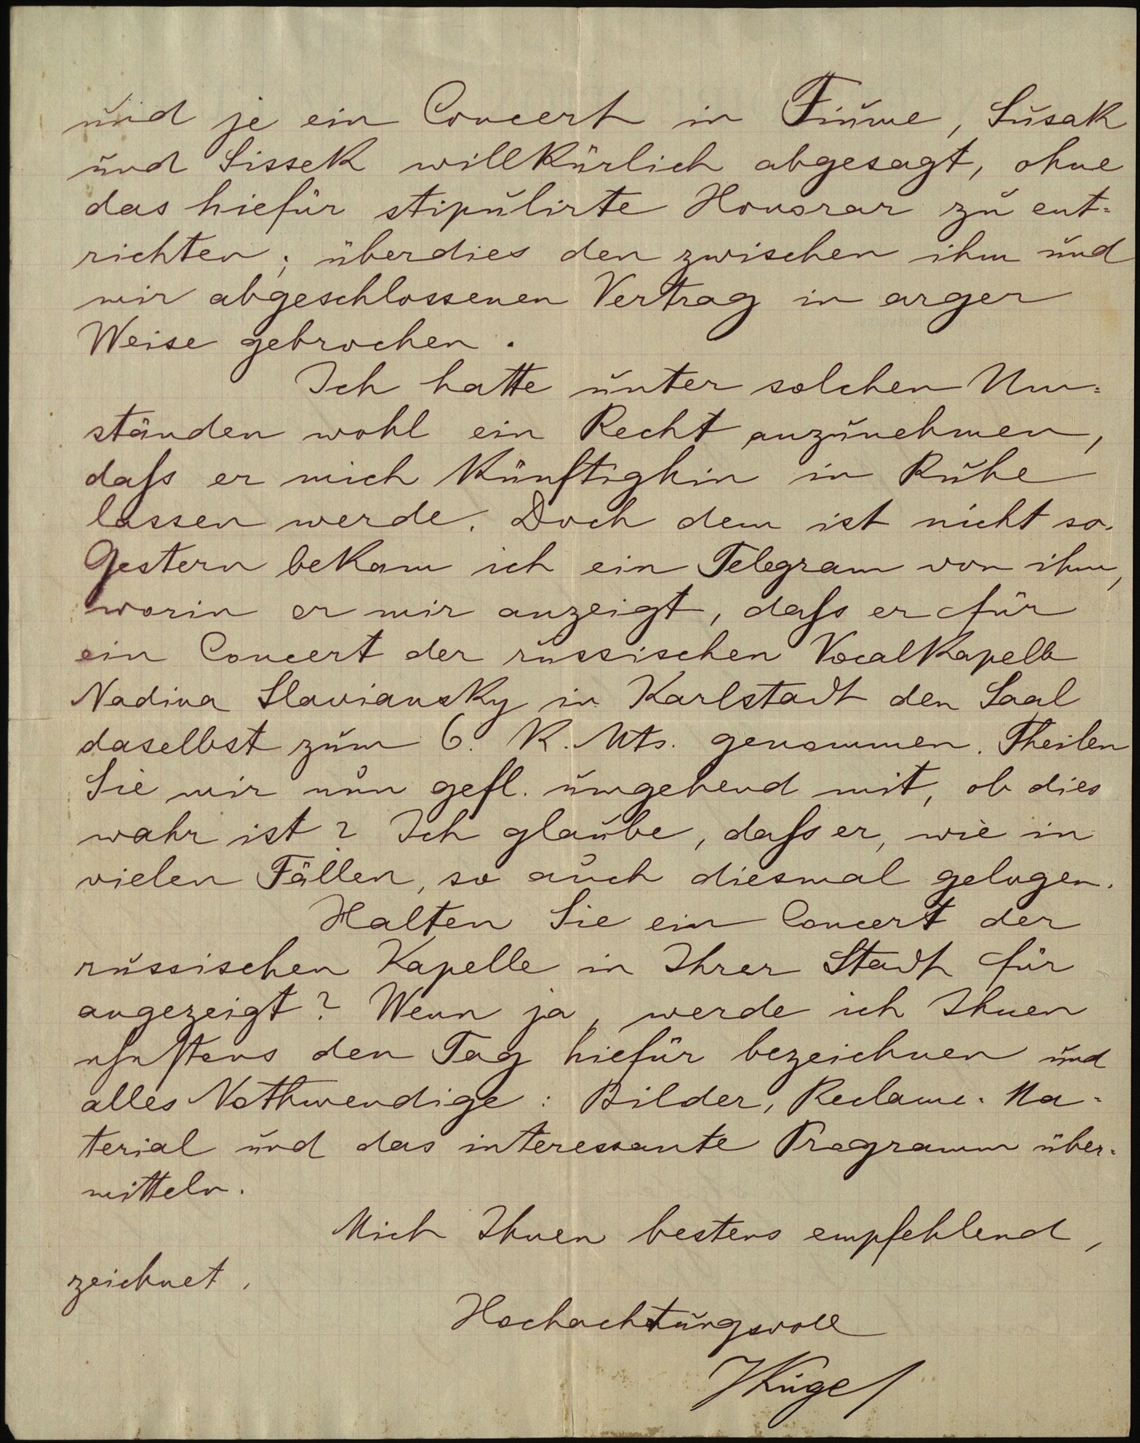 und je ein Concert in Fiume, Sušak
und Sissek willkürlich abgesagt, ohne
das hiefür stipulirte Honorar zu ent-
richten; überdies den zwischen ihm und
mir abgeschlossenen Vertrag in arger
Weise gebrochen.
Ich hatte unter solchen Um-
ständen wohl ein Recht anzunehmen,
dafs er mich künftighin in Ruhe
lassen werde. Doch dem ist nicht so.
Gestern bekam ich ein Telegram von ihm,
worin er mir anzeigt, dafs er für
ein Concert der russischen Vocalkapelle
Nadina Slaviansky in Karlstadt den Saal
daselbst zum 6. k. Mts. genommen. Theilen
Sie mir nun gefl. umgehend mit, ob dies
wahr ist? Ich glaube, dafs er, wie in
vielen Fällen, so auch diesmal gelogen.
Halten Sie ein Concert der
russischen Kapelle in Ihrer Stadt für
angezeigt? Wenn ja, werde ich Ihnen
den Tag hiefür bezeichnen und
alles Nothwendige: Bilder, Reclame-Ma-
terial und das interessante Programm über-
mitteln.
Mich Ihnen bestens empfehlend,
zeichnet,
Hochachtungsvoll
Kugel